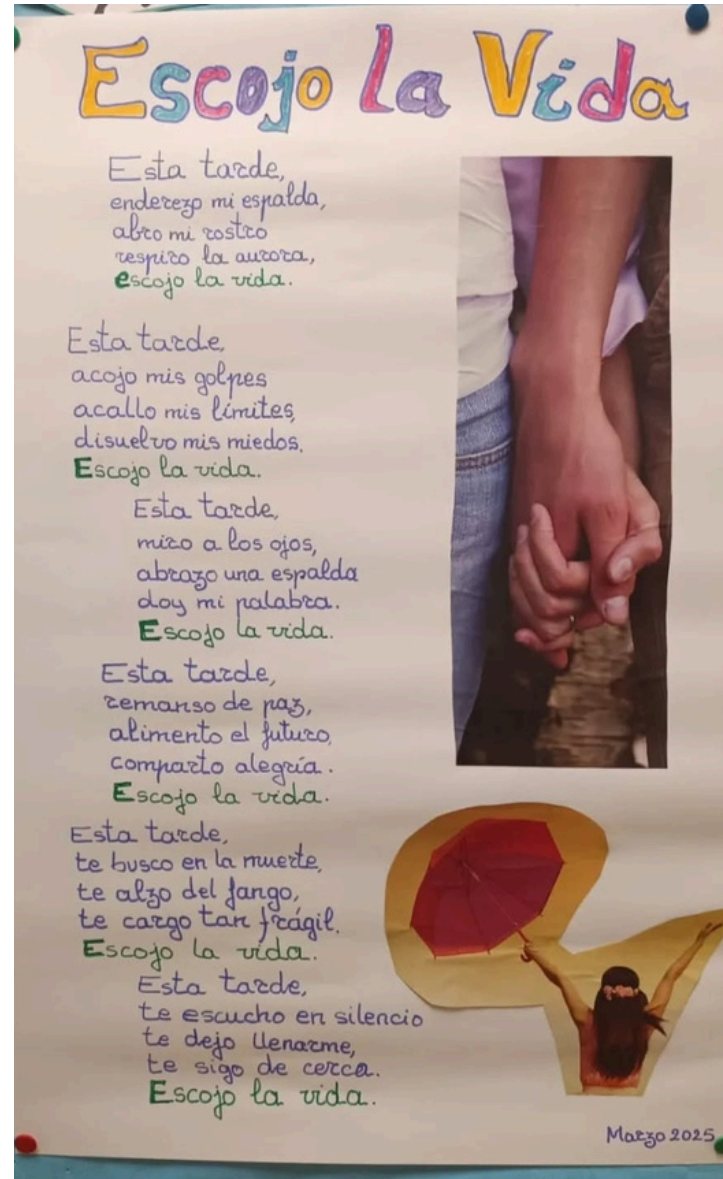 Escojo la Vida
Esta tarde,
enderezo mi espalda,
abro mi rostro
respiro la aurora,
escojo la vida.
Esta tarde,
acojo mis golpes
acallo mis límites,
disuelvo mis miedos.
Escojo la vida.
Esta tarde,
miro a los ojos,
abrazo una espalda
doy mi palabra.
Escojo la vida.
Esta tarde,
remanso de paz,
alimento el futuro,
comparto alegría.
Escojo la vida.
Esta tarde,
te busco en la muerte,
te alzo del fango,
te cargo tan frágil.
Escojo la vida.
Esta tarde,
te escucho en silencio
te dejo llenarme,
te sigo de cerca.
Escojo la vida.
Marzo 2025